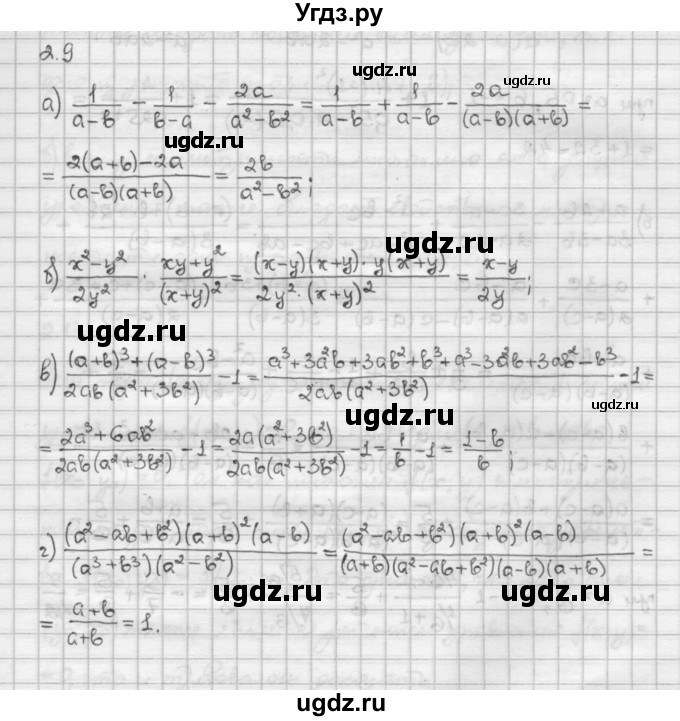 Угдз.ру
2.9
ugdz.ru
ugdz.ru
а) 1/(a-b) - 1/(b-a) - 2a/(a²-b²) = 1/(a-b) + 1/(a-b) - 2a/((a-b)(a+b)) =
ugdz.ru
= (2(a+b)-2a)/((a-b)(a+b)) = 2b/(a²-b²);
ugdz.ru
б) (x²-y²)/(2y²) · (xy+y²)/((x+y)²) = ((x-y)(x+y)·y(x+y))/(2y²·(x+y)²) = (x-y)/(2y);
ugdz.ru
в) ((a+b)³+(a-b)³)/(2ab(a²+3b²)) - 1 = (a³+3a²b+3ab²+b³+a³-3a²b+3ab²-b³)/(2ab(a²+3b²)) - 1 =
ugdz.ru
ugdz.ru
= (2a³+6ab²)/(2ab(a²+3b²)) - 1 = (2a(a²+3b²))/(2ab(a²+3b²)) - 1 = 1/b - 1 = (1-b)/b;
г) ((a²-ab+b²)(a+b)²(a-b))/((a³+b³)(a²-b²)) = ((a²-ab+b²)(a+b)²(a-b))/((a+b)(a²-ab+b²)(a-b)(a+b)) =
ugdz.ru
ugdz.ru
= (a+b)/(a+b) = 1.
ugdz.ru
ugdz.ru